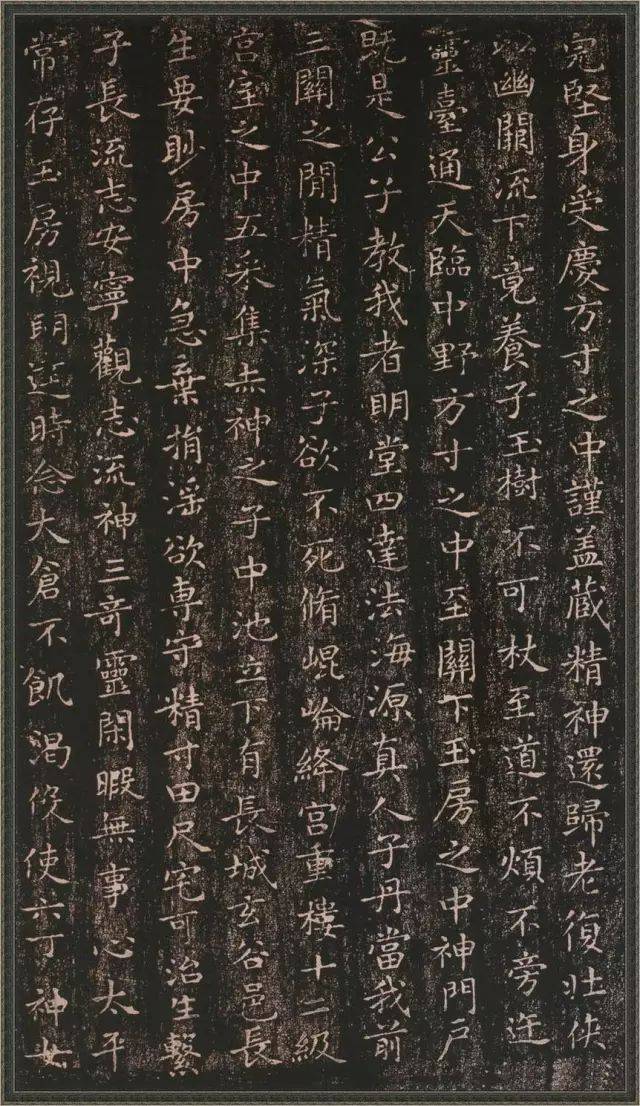 完堅身受慶方寸之中謹盖蔵精神還歸老復壯俠
以幽闕流下竟養子玉樹不可杖至道不煩不旁迕
靈臺通天臨中野方寸之中至關下玉房之中神門戶
既是公子教我者眀堂四達法海源真人子丹當我前
三關之間精氣深子欲不死脩崐崘絳宫重樓十二級
宫室之中五采集赤神之子中池立下有長城玄谷邑長
生要眇房中急棄捐滛欲專守精寸田尺宅可治生繫
子長流志安寧觀志流神三奇靈閑暇無事心太平
常存玉房視眀達時念大倉不飢渴伇使六丁神女